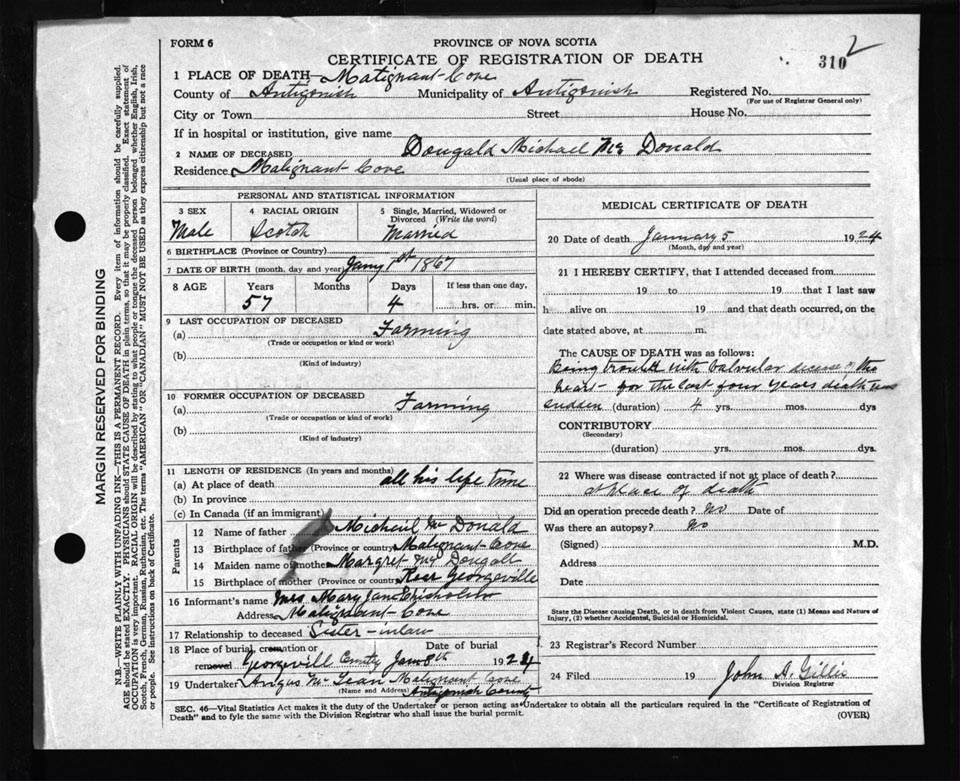 FORM 6
PROVINCE OF NOVA SCOTIA
CERTIFICATE OF REGISTRATION OF DEATH
310 2
1 PLACE OF DEATH Malignant Cove
County of Antigonish Municipality of Antigonish Registered No.
(For use of Registrar General only)
City or Town Street House No.
If in hospital or institution, give name
2 NAME OF DECEASED Dougald Michael Mc Donald
Residence Malignant Cove
(Usual place of abode)
PERSONAL AND STATISTICAL INFORMATION
3 SEX Male
4 RACIAL ORIGIN Scotch
5 Single, Married, Widowed or Divorced (Write the word) Married
6 BIRTHPLACE (Province or Country)
7 DATE OF BIRTH (month, day and year) Jany 1st 1867
8 AGE Years Months Days If less than one day,
57 4 hrs. or min.
9 LAST OCCUPATION OF DECEASED
(a) Farming
(Trade or occupation or kind or work)
(b)
(Kind of industry)
10 FORMER OCCUPATION OF DECEASED
(a) Farming
(Trade or occupation or kind of work)
(b)
(Kind of industry)
11 LENGTH OF RESIDENCE (In years and months)
(a) At place of death all his life time
(b) In province
(c) In Canada (if an immigrant)
Parents
12 Name of father Micheil Mc Donald
13 Birthplace of father (Province or country) Malignant Cove
14 Maiden name of mother Margret Mc Dougall
15 Birthplace of mother (Province or country) Rear Georgeville
16 Informant's name Mrs. Mary Jane Chisholm
Address Malignant Cove
17 Relationship to deceased Sister-inlaw
18 Place of burial, cremation or removal Date of burial
Georgevill Jan 8th 1924
19 Undertaker Angus Mc Lean Malignant Cove
(Name and Address) Antigonish County
MEDICAL CERTIFICATE OF DEATH
20 Date of death January 5 1924
(Month, day and year)
21 I HEREBY CERTIFY, that I attended deceased from
19 to 19 that I last saw
h alive on 19 and that death occurred, on
date stated above, at m.
The CAUSE OF DEATH was as follows:
Being trould with valvular disease of the
heart - for the last four years death was
sudden (duration) 4 yrs. mos. dys
CONTRIBUTORY
(Secondary)
(duration) yrs. mos. dys.
22 Where was disease contracted if not at place of death?
Place of death
Did an operation precede death? No Date of
Was there an autopsy? No
(Signed) M.D.
Address
Date
State the Disease causing Death, or in death from Violent Causes, state (1) Means and Nature of
Injury, (2) whether Accidental, Suicidal or Homicidal.
23 Registrar's Record Number
24 Filed 19 John A. Gillis
Division Registrar
SEC. 46—Vital Statistics Act makes it the duty of the Undertaker or person acting as Undertaker to obtain all the particulars required in the "Certificate of Registration of
Death" and to fyle the same with the Division Registrar who shall issue the burial permit.
(OVER)
MARGIN RESERVED FOR BINDING
N.B.—WRITE PLAINLY WITH UNFADING INK—THIS IS A PERMANENT RECORD. Every item of information should be carefully supplied.
AGE should be stated EXACTLY. PHYSICIANS should STATE CAUSE OF DEATH in plain terms, so that it may be properly classified. Exact statement of
OCCUPATION is very important. RACIAL ORIGIN will be described by stating to what people or tongue the deceased person belonged whether English, Irish,
Scotch, French, German, Russian, Ruthenian, etc. The terms "AMERICAN" OR "CANADIAN" MUST NOT BE USED as they express citizenship but not a race
or people. See instructions on back of Certificate.